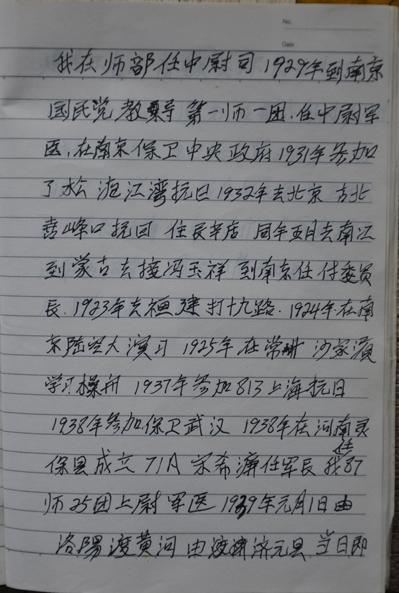 No.
Date
我在师部任中尉司 1929年到南京
国民党教导第一师一团.任中尉军
医,在南京保卫中央政府1931年参加
了松沪江湾抗日1932年去北京 古北
喜峰口抗日 住辛店 同年五月去南江
到蒙古去接冯玉祥 到南京任付委员
长.1923年去福建打十九路.1924年在南
京陆空大演习 1925年在常州 沙家浜
学习操舟 1937年参加813上海抗日
1938年参加保卫武汉 1938年在河南灵
保县成立71A 宋希濂任军长 我任87
师25团上尉军医 1939年元月1日由
洛阳渡黄河 由济元县 当日即